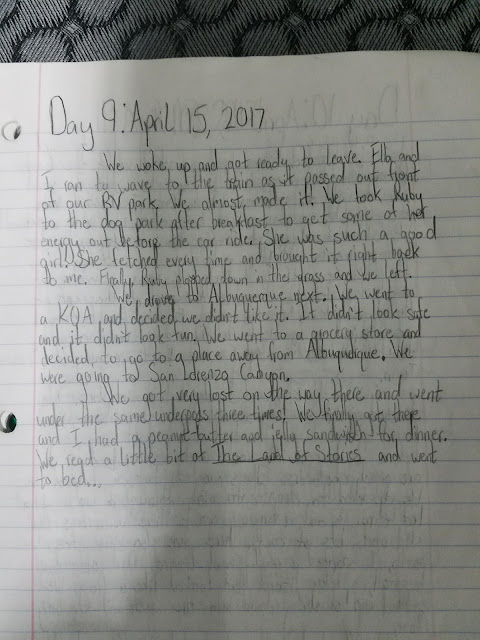 Day 9: April 15, 2017
We woke up and got ready to leave. Ella and
I ran to wave to the train as it passed out front
of our RV park. We almost made it. We took Ruby
to the dog park after breakfast to get some of her
energy out before the car ride. She was such a good
girl! She fetched every time and brought it right back
to me. Finally, Ruby plopped down in the grass and we left.
We drove to Albuquerque next. We went to
a KOA and decided we didn't like it. It didn't look safe
and it didn't look fun. We went to a grocery store and
decided to go to a place away from Albuqudique. We
were going to San Lorenzo Canyon.
We got very lost on the way there and went
under the same underpass three times! We finally got there
and I had a peanut-butter and jelly sandwich for dinner.
We read a little bit of The Land of Stories and went
to bed...